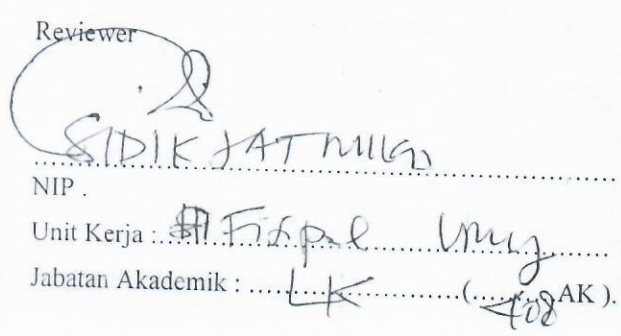 Reviewer
SIDIK JATMIKA
NIP .
Unit Kerja : Fisipol UMY
Jabatan Akademik : LK (408 AK ).